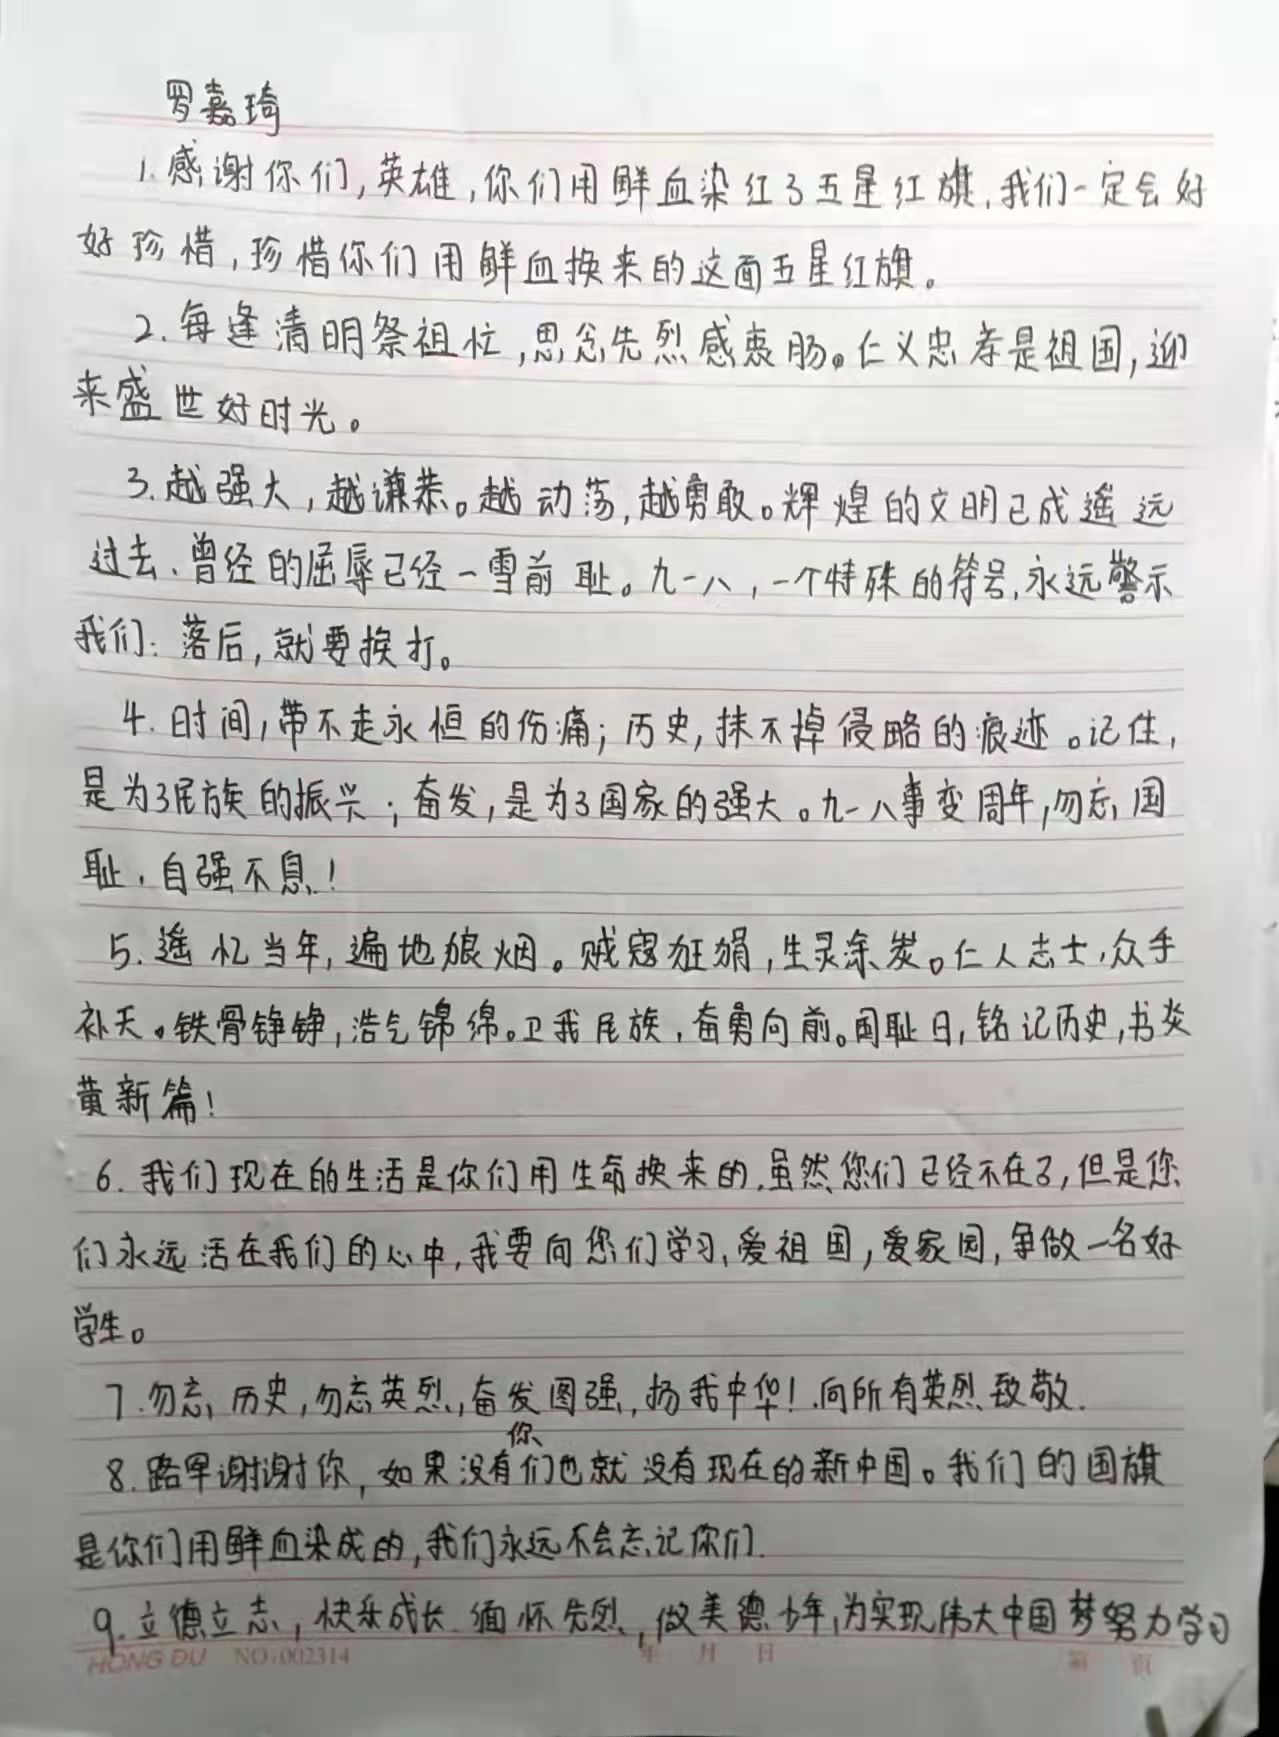 罗嘉琦
1.感谢你们,英雄,你们用鲜血染红了五星红旗,我们一定会好
好珍惜,珍惜你们用鲜血换来的这面五星红旗。
2.每逢清明祭祖忙,思念先烈感衷肠。仁义忠孝是祖国,迎
来盛世好时光。
3.越强大,越谦恭。越动荡,越勇敢。辉煌的文明已成遥远
过去、曾经的屈辱已经一雪前耻。九一八,一个特殊的符号,永远警示
我们:落后,就要挨打。
4.时间,带不走永恒的伤痛;历史,抹不掉侵略的痕迹。记住,
是为了民族的振兴;奋发,是为了国家的强大。九一八事变周年,勿忘国
耻,自强不息!
5.遥忆当年,遍地狼烟。贼寇狂狷,生灵涂炭。仁人志士,众手
补天。铁骨铮铮,浩气锦绵。卫我民族,奋勇向前。国耻日,铭记历史,书炎
黄新篇!
6.我们现在的生活是你们用生命换来的.虽然您们已经不在了,但是您
们永远活在我们的心中,我要向您们学习,爱祖国,爱家园,争做一名好
学生。
7.勿忘历史,勿忘英烈,奋发图强,扬我中华!.向所有英烈致敬.
8.路罕谢谢你,如果没有你们也就没有现在的新中国。我们的国旗
是你们用鲜血染成的,我们永远不会忘记你们.
9.立德立志,快乐成长.缅怀先烈,做美德少年,为实现伟大中国梦努力学习
HONG DU NO:002314 年 月 日 第 页